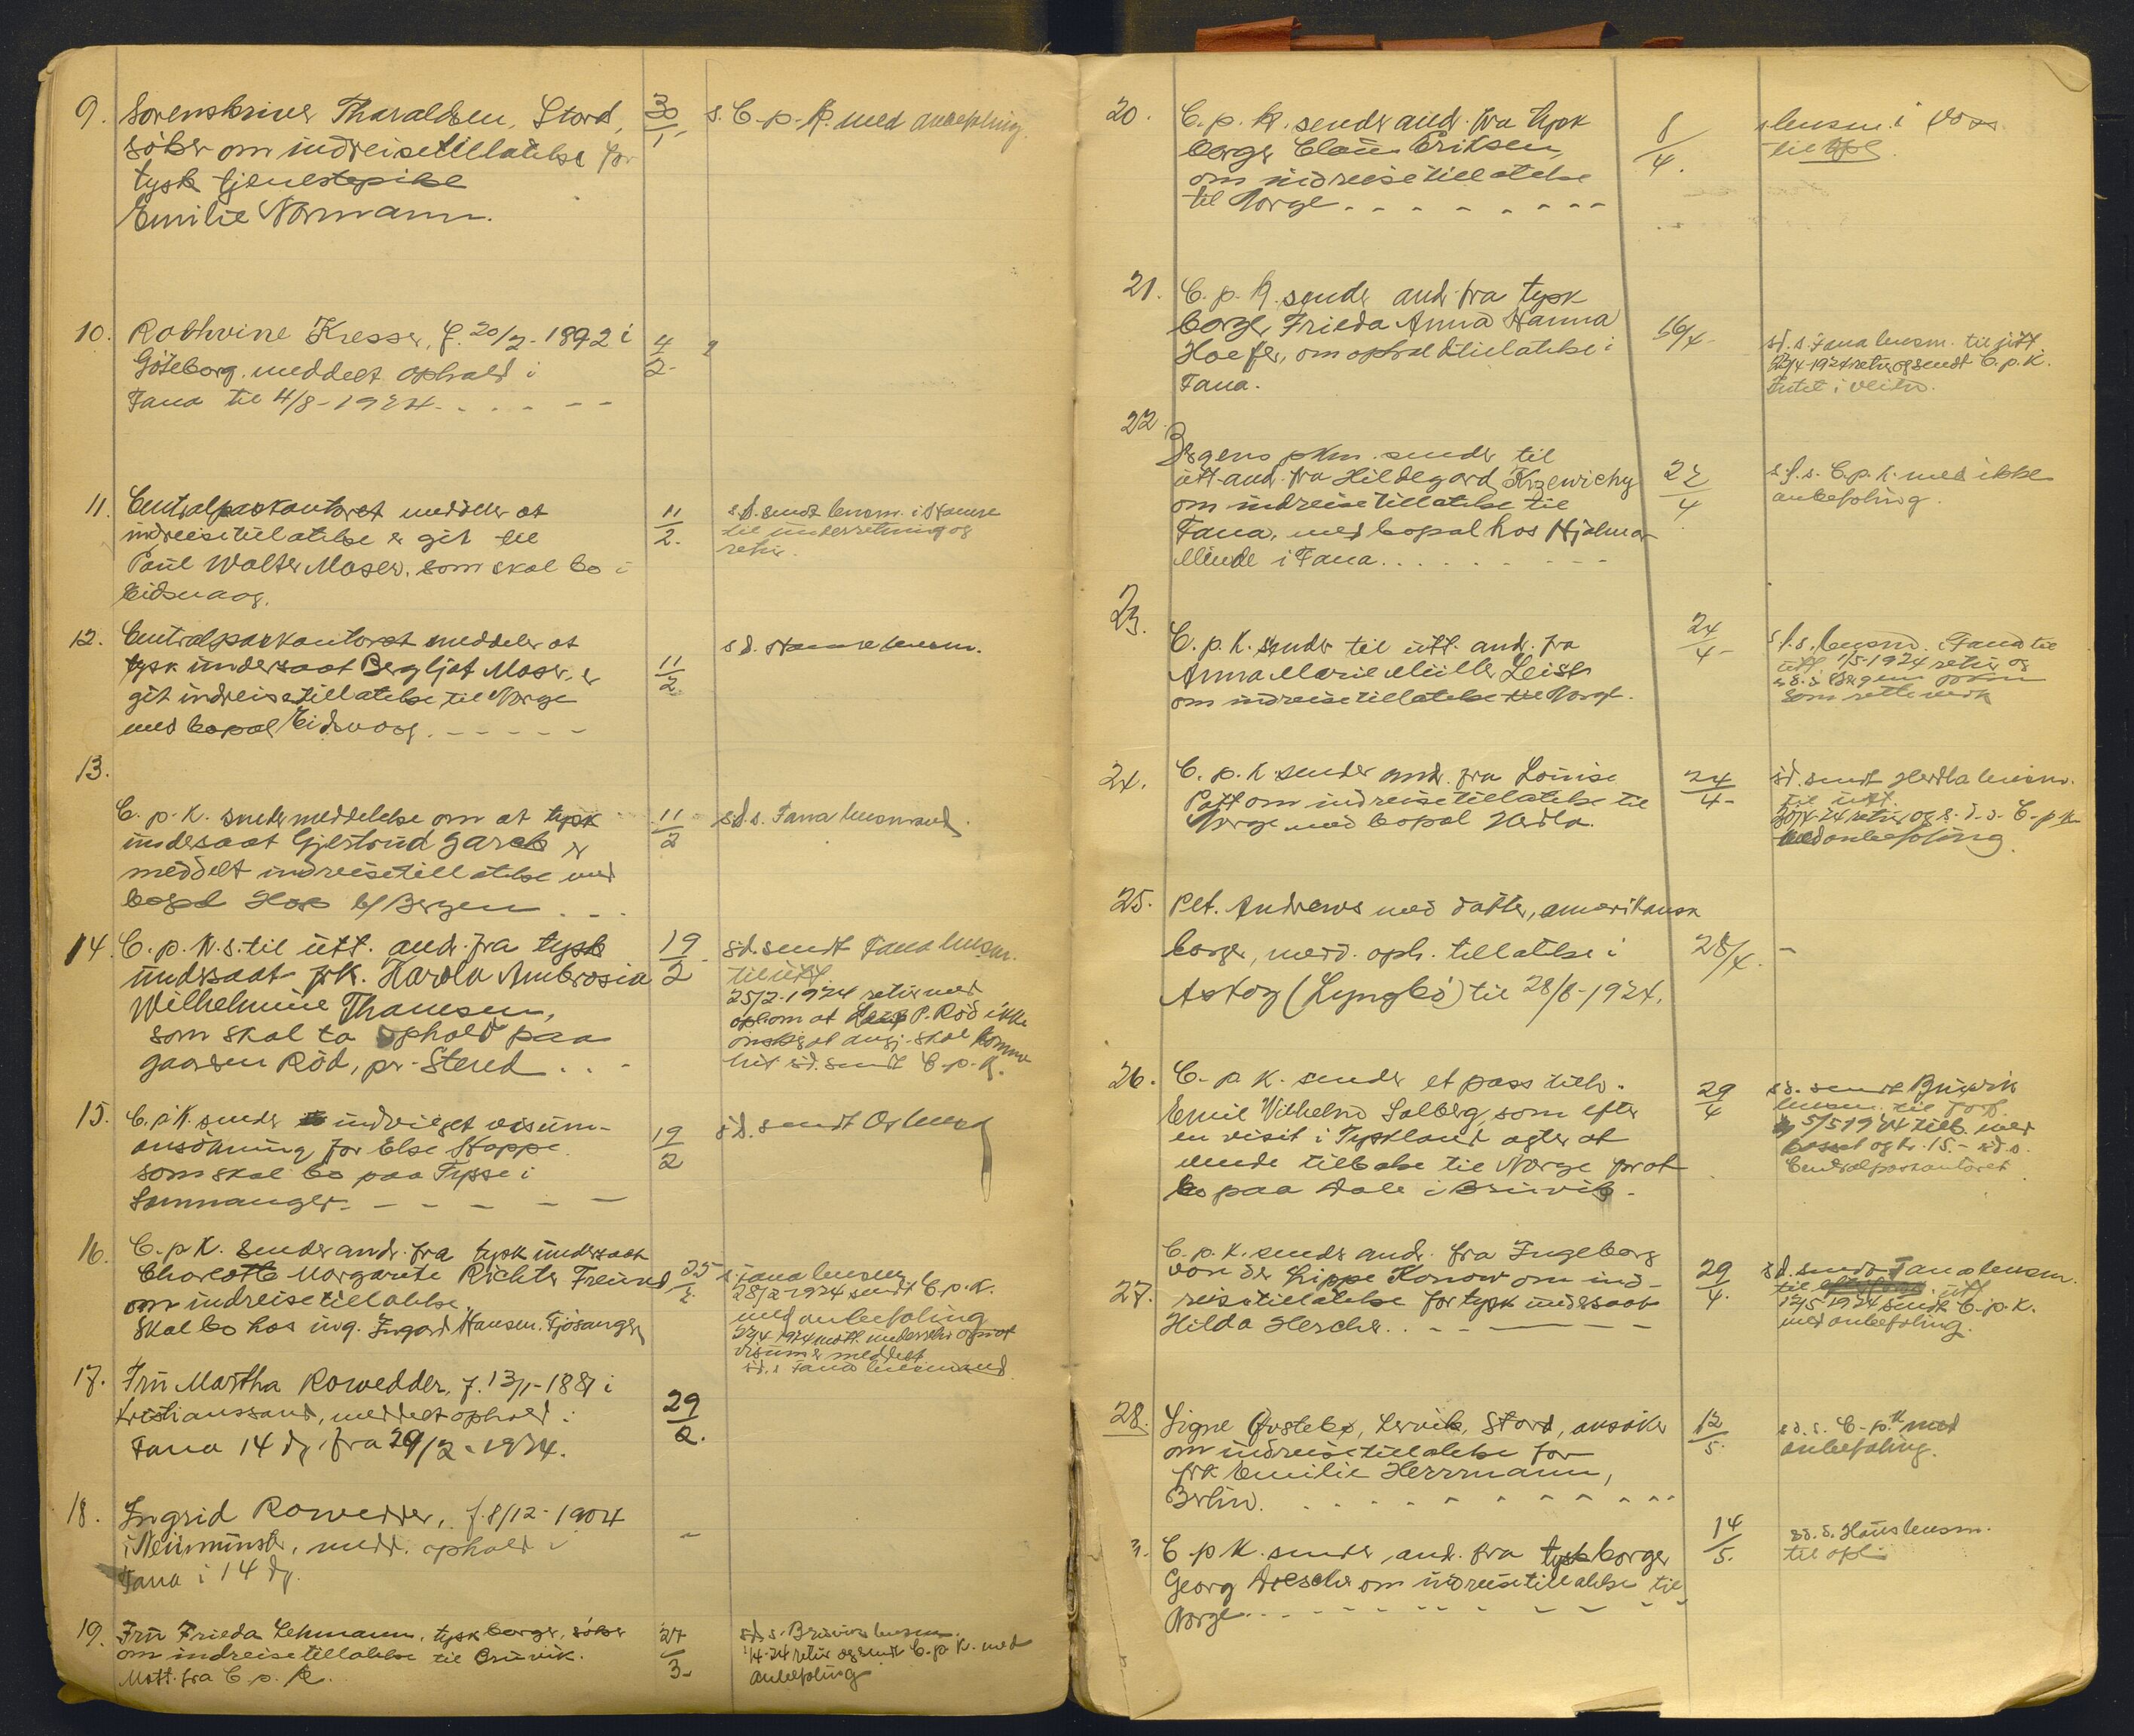 9. Sorenskriver Tharaldsen, Stord, 30/1 s. C.p.K. med anbefaling.
söker om indreisetillatelse for
tysk tjenestepike
Emilie Normann.
10. Kresser, f. 20/2-1892 i 4/2
Göteborg. meddelt ophold i
Fana til 4/8-1924
11. Centralpaskontoret meddeler at 11/2. s.d. sendt lensm. i Hamre
indreisetillatelse er git til til underretning og
Paul Walter Moser, som skal bo i retur.
Eidsvaag.
12. Centralpaskontoret meddeler at s.d. Hamre lensm.
tysk undersaat Bergljot Moser, er 11/2
git indreisetillatelse til Norge
med bopæl Eidsvaag.
13.
C.p.K. sender meddelelse om at tysk 11/2 s.d.s. Fana lensmand.
undersaat Gjertrud Garck er
meddelt indreisetillatelse med
bopæl Hop b/Bergen
14. C.p.K. s. til utt. and. fra tysk 19/2 s.d. sendt Fana lensm.
undersaat frk. Karola Ambrosia til utt.
Wilhelmine Thamsen, 25/2-1924 retur med
som skal ta ophold paa opl. om at P. Röd ikke
gaarden Röd, pr. Stend önsker at angj. skal komme
hit s.d. sendt C.p.K.
15. C.p.K. sender indvilget visum- 19/2 s.d. sendt Os lensm.
ansökning for Else Stoppe
som skal bo paa Tysse i
Samnanger.
16. C.p.K. sender andr. fra tysk undersaat 25/2 s. Fana lensm.
Charlotte Margarete Richter Freund, 28/2-1924 sendt C.p.K.
om indreisetillatelse. med anbefaling
Skal bo hos ing. Ingard Hansen. Fjösanger 22/4 1924 mott. underretn. om at
visum er meddelt
s.d.s. Fana lensmand
17. Fru Martha Rowedder, f. 13/1-1881 i 29/2.
Kristianssand, meddelt ophold i
Fana 14 dg. fra 29/2-1924.
18. Ingrid Rowedder, f. 8/12-1904 -
i Neumünster, medd. ophold i
Fana i 14 dg.
19. Fru Frieda Lehmann, tysk borger, söker 27/3- s.d.s. Bruvik lensm.
om indreisetillatelse til Bruvik. 1/4-24 retur og sendt C.p.K. med
Mott. fra C.p.K. anbefaling
20. C.p.K. sender and. fra tysk 8/4. lensm. i Voss
borger Claus Eriksen, til opl.
om indreisetillatelse
til Norge
21. C.p.K. sender and. fra tysk
borger Frieda Anna Hanna 16/4- s.d.s. Fana lensm. til utt.
Hoefer, om opholdstillatelse i 22/4-1924 retur og sendt C.p.K.
Fana. Intet i veien.
22.
Bergens pkm. sender til
utt. and. fra Hildegard Krzewichy 22/4 s.d.s. C.p.K. med ikke
om indreisetillatelse til anbefaling.
Fana, med bopæl hos Hjalmar
Minde i Fana
23.
C.p.K. sender til utt. and. fra 24/4- s.d.s. lensm. i Fana til
Anna Marie Müller Leist utt. 1/5-1924 retur og
om indreisetillatelse til Norge. s.d.s. Bergens pkm.
som rette vedk.
24. C.p.K. sender and. fra Louise 24/4- s.d. sendt Herdla lensm.
Patt om indreisetillatelse til til utt.
Norge med bopæl Herdla. 30/4-24 retur og s.d.s. C.p.K.
med anbefaling
25. Pet. Andrews med datter, amerikansk
borger, medd. oph. tillatelse i 28/4. -
Askøy (Lyngbö) til 28/8-1924.
26. C.p.K. sender et pass tilh. 29/4 s.d. sendt Bruvik
Emil Vilhelm Solberg, som efter lensm. til
en visit i Tyskland agter at 5/5 1924 tilb. med
vende tilbake til Norge for at passet og kr. 15.- s.d.s.
bo paa Dale i Bruvik. Centralpaskontoret
C.p.K. sender and. fra Ingeborg
27. von der Lippe Konow om ind- 29/4. s.d. sendt Fana lensm.
reisetillatelse for tysk undersaat til utt
Hilda Hescher. 12/5 1924 sendt C.p.K.
med anbefaling.
28. Signe Østebø, Lervik, Stord, ansöker 12/5. s.d.s. C.p.K. med
om indreisetillatelse for anbefaling.
frk. Emilie Herrmann,
Berlin.
C.p.K. sender and. fra tysk borger 14/5. s.d.s. Haus lensm.
Georg Drescher om indreisetillatelse til til opl.
Norge